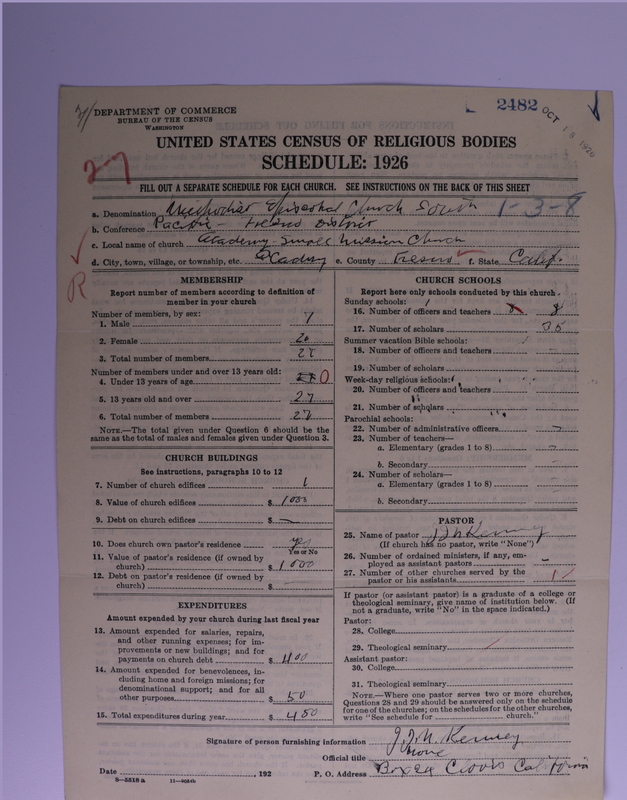 2482 OCT 18 1926
DEPARTMENT OF COMMERCE
BUREAU OF THE CENSUS
WASHINGTON
UNITED STATES CENSUS OF RELIGIOUS BODIES
SCHEDULE: 1926
27
FILL OUT A SEPARATE SCHEDULE FOR EACH CHURCH. SEE INSTRUCTIONS ON THE BACK OF THIS SHEET
a. Denomination Methodist Episcopal Church South 1-3-8
b. Conference Pacific - Fresno District
c. Local name of church Academy - Small Mission Church
d. City, town, village, or township, etc. Academy e. County Fresno f. State Calif.
R
MEMBERSHIP
Report number of members according to definition of
member in your church
Number of members, by sex:
1. Male 7
2. Female 20
3. Total number of members 27
Number of members under and over 13 years old:
4. Under 13 years of age 0
5. 13 years old and over 27
6. Total number of members 27
NOTE.—The total given under Question 6 should be the
same as the total of males and females given under Question 3.
CHURCH BUILDINGS
See instructions, paragraphs 10 to 12
7. Number of church edifices 1
8. Value of church edifices $ 1000
9. Debt on church edifices $ —
10. Does church own pastor's residence yes
Yes or No
11. Value of pastor's residence (if owned by
church) $ 1000
12. Debt on pastor's residence (if owned by
church) $
EXPENDITURES
Amount expended by church during last fiscal year
13. Amount expended for salaries, repairs,
and other running expenses; for im-
provements or new buildings; and for
payments on church debt $ 400
14. Amount expended for benevolences, in-
cluding home and foreign missions; for
denominational support; and for all
other purposes $ 50
15. Total expenditures during year $ 450
CHURCH SCHOOLS
Report here only schools conducted by this church
Sunday schools:
16. Number of officers and teachers 8
17. Number of scholars 35
Summer vacation Bible schools:
18. Number of officers and teachers
19. Number of scholars
Week-day religious schools:
20. Number of officers and teachers
21. Number of scholars
Parochial schools:
22. Number of administrative officers
23. Number of teachers—
a. Elementary (grades 1 to 8)
b. Secondary
24. Number of scholars—
a. Elementary (grades 1 to 8)
b. Secondary
PASTOR
25. Name of pastor J. M. Kenney
(If church has no pastor, write "None")
26. Number of ordained ministers, if any, em-
ployed as assistant pastors
27. Number of other churches served by the
pastor or his assistants 1
If pastor (or assistant pastor) is a graduate of a college or
theological seminary, give name of institution below. (If
not a graduate, write "No" in the space indicated.)
Pastor:
28. College
29. Theological seminary
Assistant pastor:
30. College
31. Theological seminary
NOTE.—Where one pastor serves two or more churches,
Questions 28 and 29 should be answered only on the schedule
for one of the churches; on the schedules for the other churches,
write "See schedule for church."
Signature of person furnishing information Kenney
Official title None
Date , 192 P. O. Address Box Clovis California
8—5518a